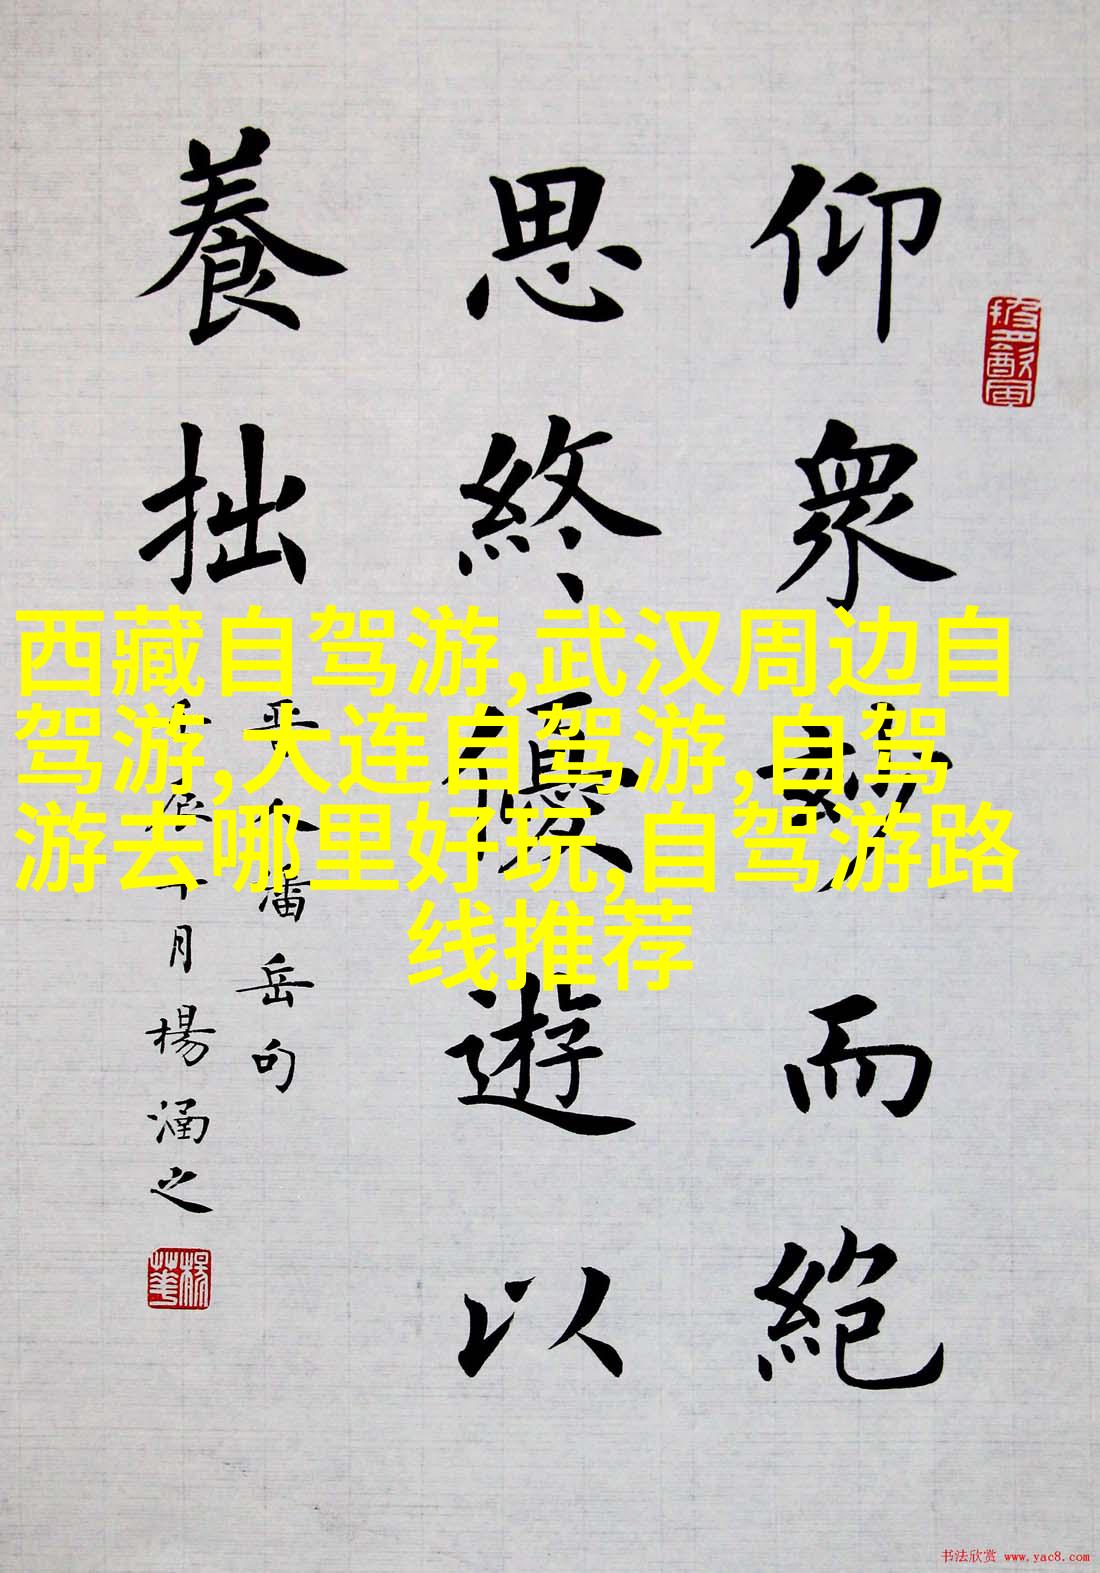 仰衆妙而絶
思終優遊以
養拙
晋人潘岳句
壬辰十月楊涵之
西藏自驾游,武汉周边自
驾游,大连自驾游,自驾
游去哪里好玩,自驾游路
线推荐
书法欣赏 www.yac8.com